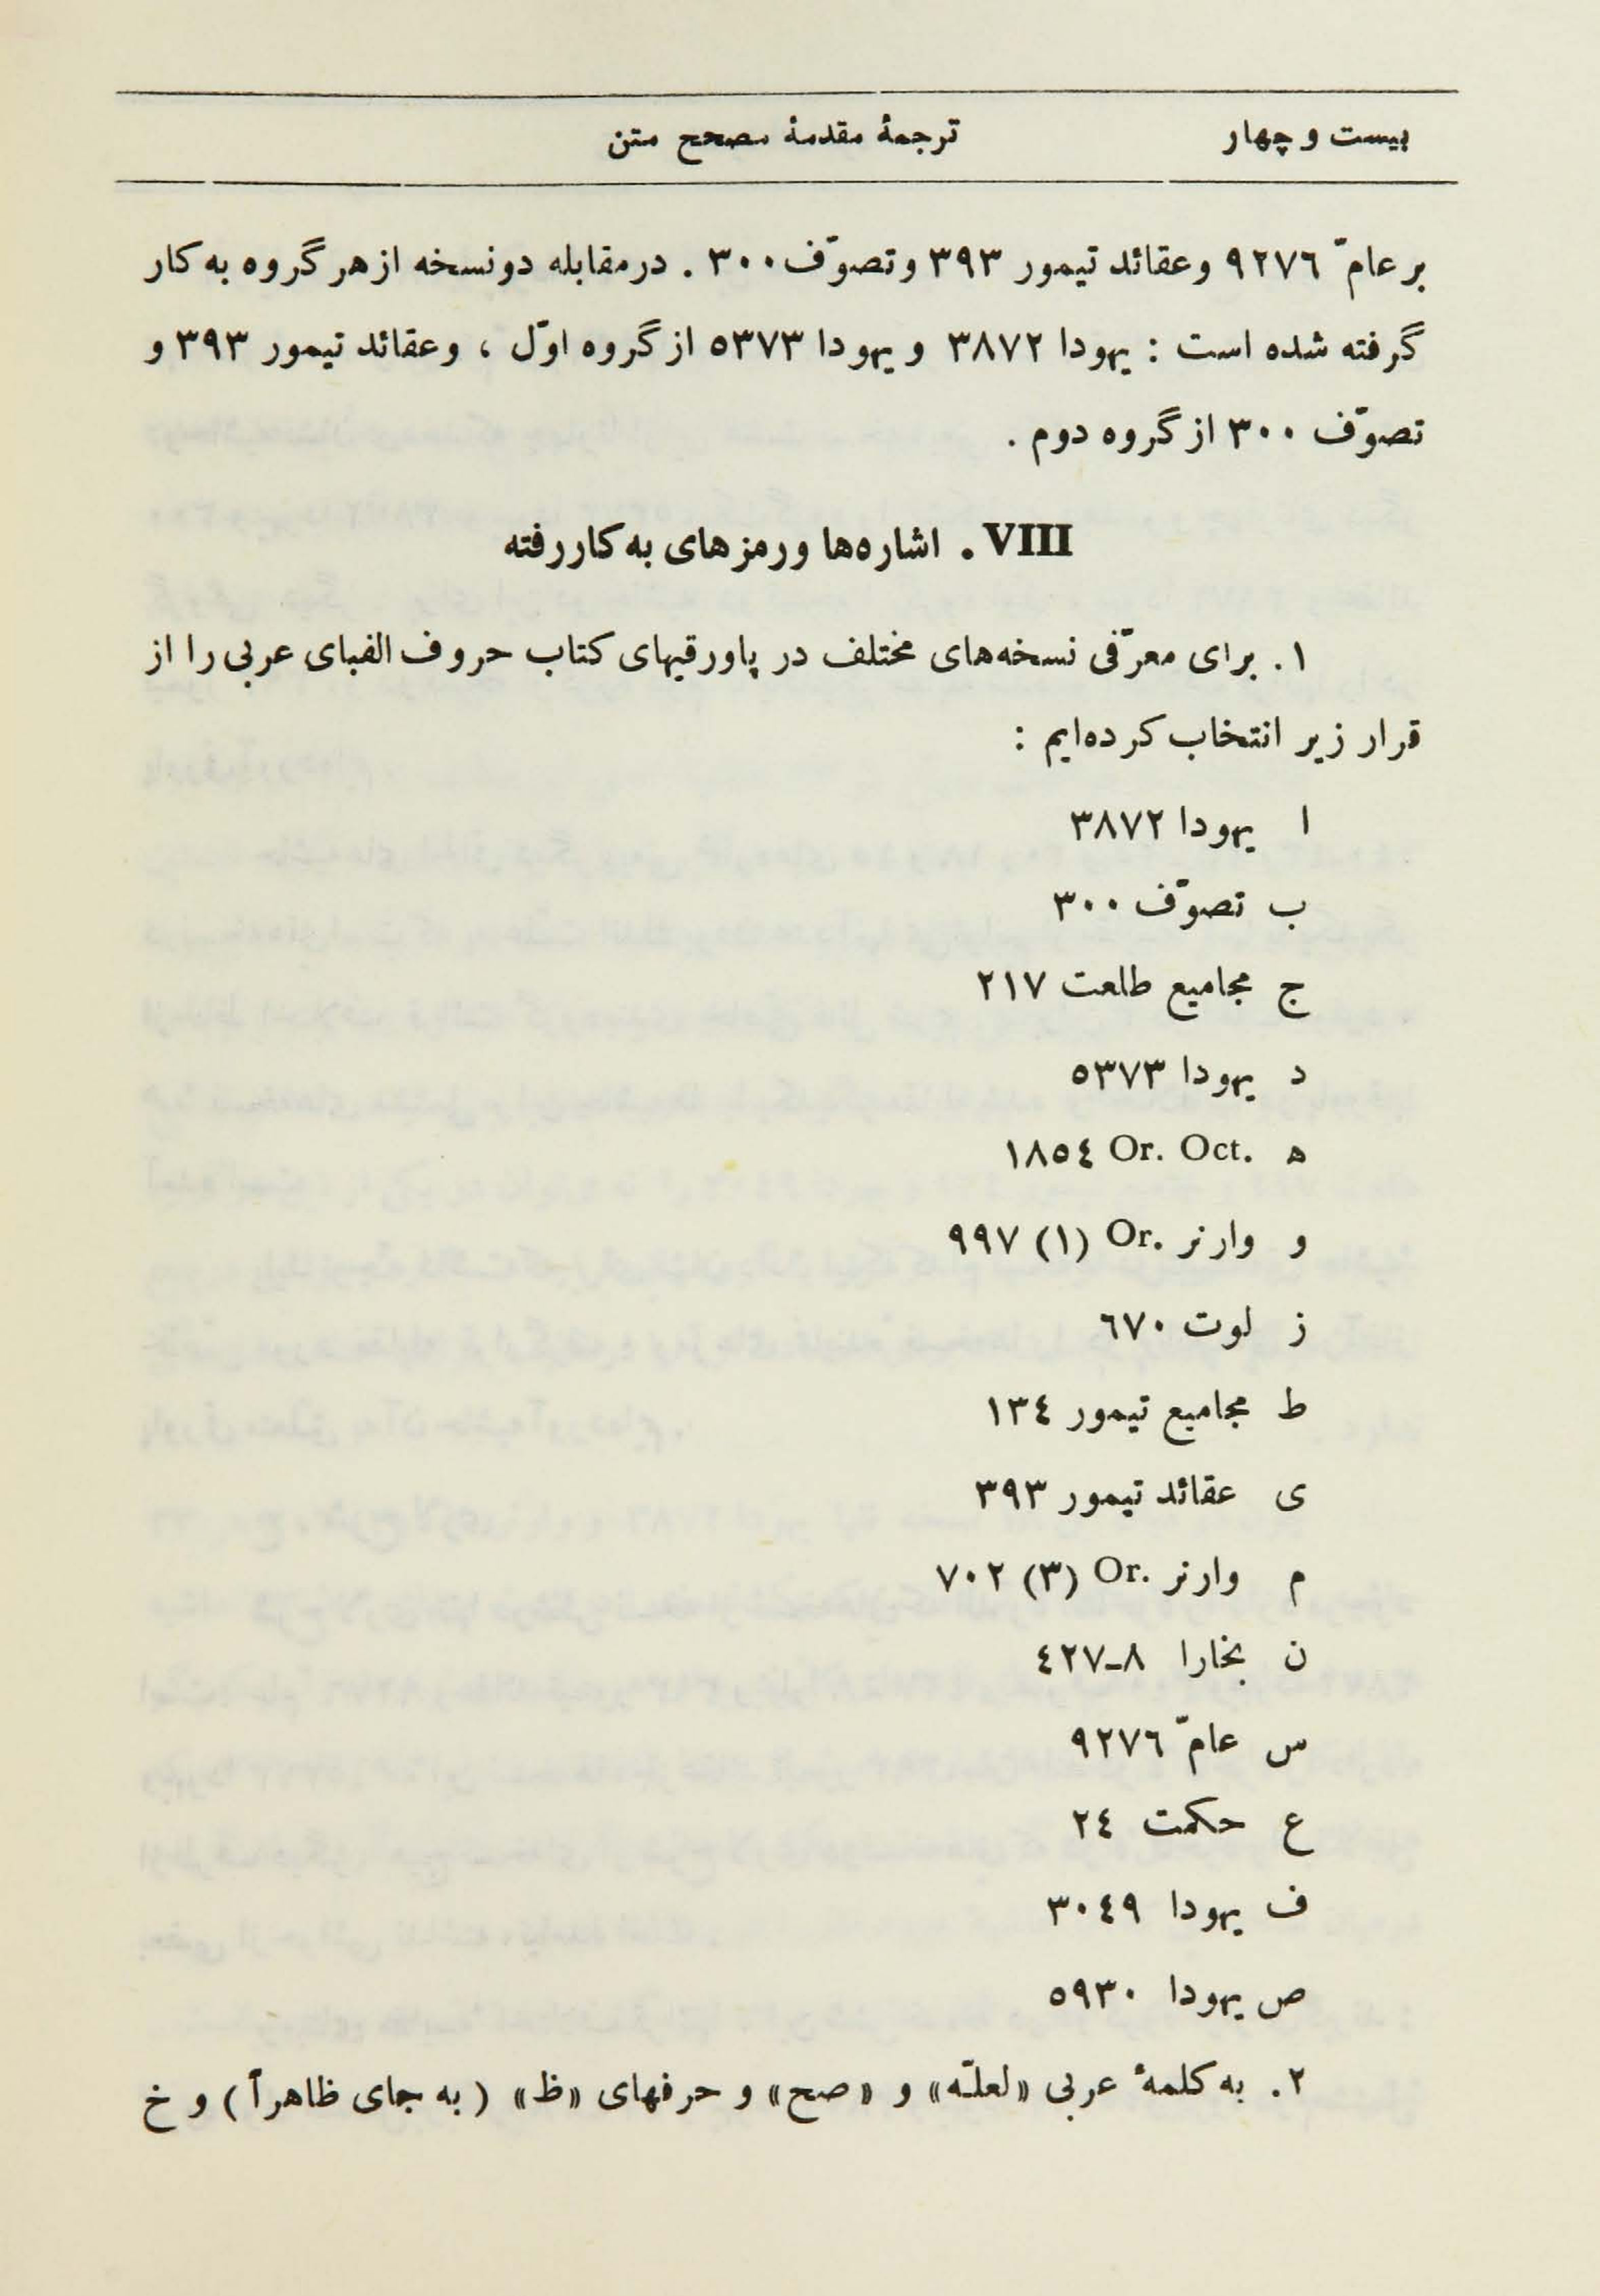 بیست و چهار ترجمهٔ مقدمهٔ مصحح متن
بر عامّ ۹۲۷٦ و عقائد تیمور ۳۹۳ و تصوّف ۳۰۰ . در مقابله دو نسخه از هر گروه به کار
گرفته شده است : یهودا ۳۸۷۲ و یهودا ۵۳۷۳ از گروه اوّل ، و عقائد تیمور ۳۹۳ و
تصوّف ۳۰۰ از گروه دوم .
VIII . اشاره‌ها و رمزهای به کار رفته
۱. برای معرّفی نسخه‌های مختلف در پاورقیهای کتاب حروف الفبای عربی را از
قرار زیر انتخاب کرده‌ایم :
ا یهودا ۳۸۷۲
ب تصوّف ۳۰۰
ج مجامیع طلعت ۲۱۷
د یهودا ۵۳۷۳
ه Or. Oct. ۱۸۵٤
و وارنر Or. (۱) ۹۹۷
ز لوت ٦۷۰
ط مجامیع تیمور ۱۳٤
ی عقائد تیمور ۳۹۳
م وارنر Or. (۳) ۷۰۲
ن بخارا ۸-٤۲۷
س عامّ ۹۲۷٦
ع حکمت ۲٤
ف یهودا ۳۰٤۹
ص یهودا ۵۹۳۰
۲. به کلمهٔ عربی «لعلّه» و «صح» و حرفهای «ظ» ( به جای ظاهراً ) و خ